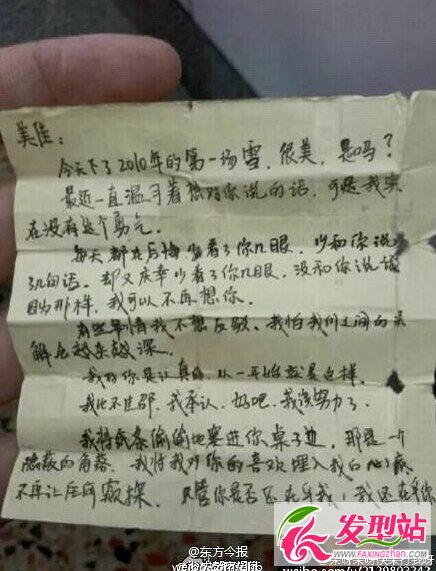 美佳：
今天下了2010年的第一场雪，很美，是吗？
最近一直温习着想对你说的话，可是我实
在没有这个勇气。
每天都在后悔少看了你几眼，少和你说
了几句话。却又庆幸少看了你几眼，没和你说话
因为那样，我可以不再想你。
有些事情我不想反驳，我怕我们之间的误
解会越来越深。
我对你是认真的，从一开始就是这样。
我比不过邵，我承认，好吧，我该努力了。
我将纸条偷偷地塞进你桌子边，那是一个
隐蔽的角落，我将我对你的喜欢埋入我的心底
不再让任何窥探。只管你是否还在乎我，我还在乎你
@东方今报
weibo.com/jinbao
发型站
www.faxingzhan.com